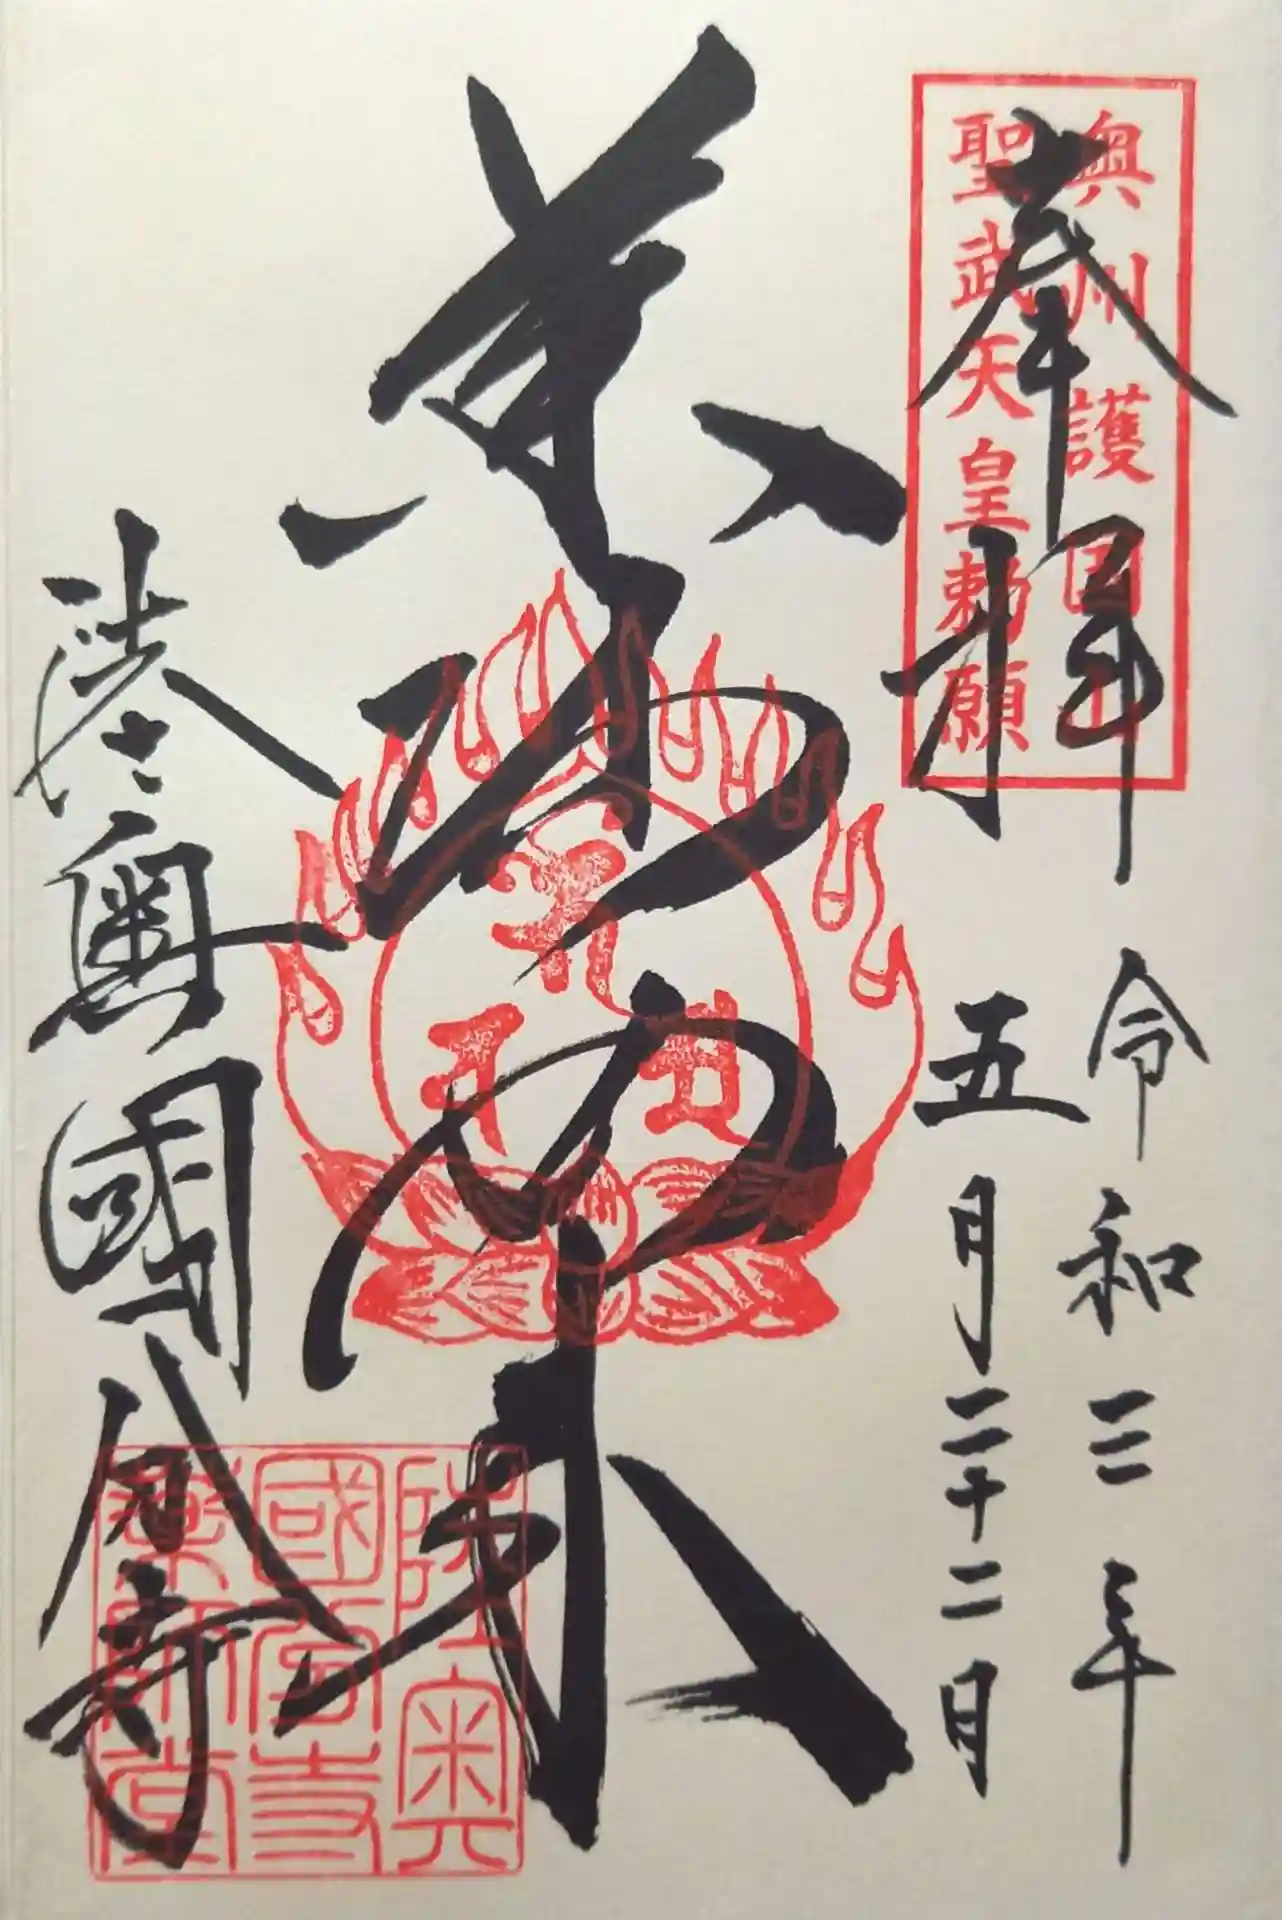 奉拝
奥州護国山
聖武天皇勅願
令和三年
五月二十二日
薬師如来
陸奥國分寺
陸奥
國分寺
薬師堂